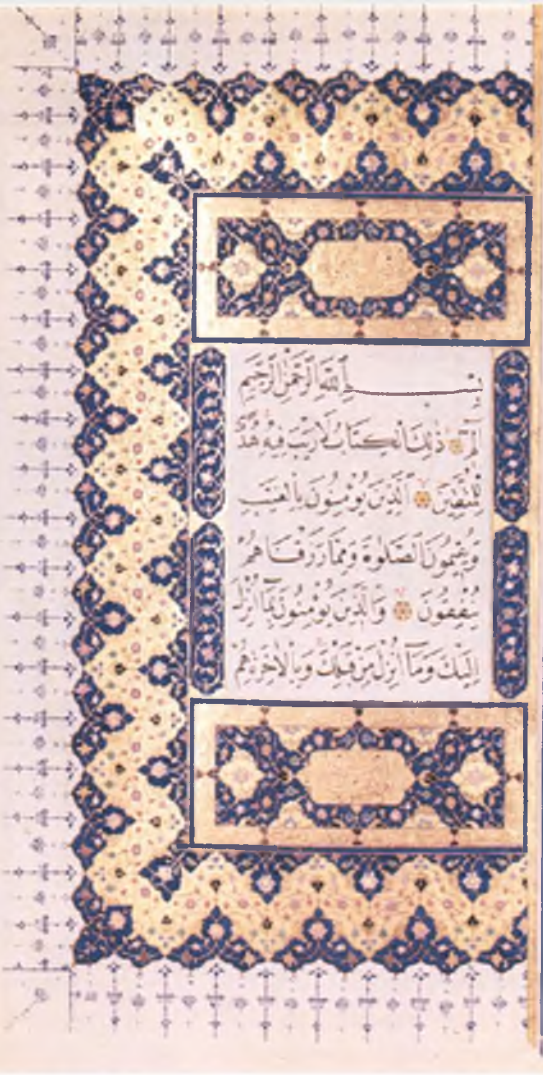 بِسْــــــــمِ اللّٰهِ الرَّحْمٰنِ الرَّحِيمِ
الٓمٓ ذٰلِكَ الْكِتَابُ لَا رَيْبَ فِيهِ هُدًى
لِلْمُتَّقِينَ الَّذِينَ يُؤْمِنُونَ بِالْغَيْبِ
وَيُقِيمُونَ الصَّلٰوةَ وَمِمَّا رَزَقْنَاهُمْ
يُنْفِقُونَ وَالَّذِينَ يُؤْمِنُونَ بِمَا أُنْزِلَ
إِلَيْكَ وَمَا أُنْزِلَ مِنْ قَبْلِكَ وَبِالْاٰخِرَةِ هُمْ